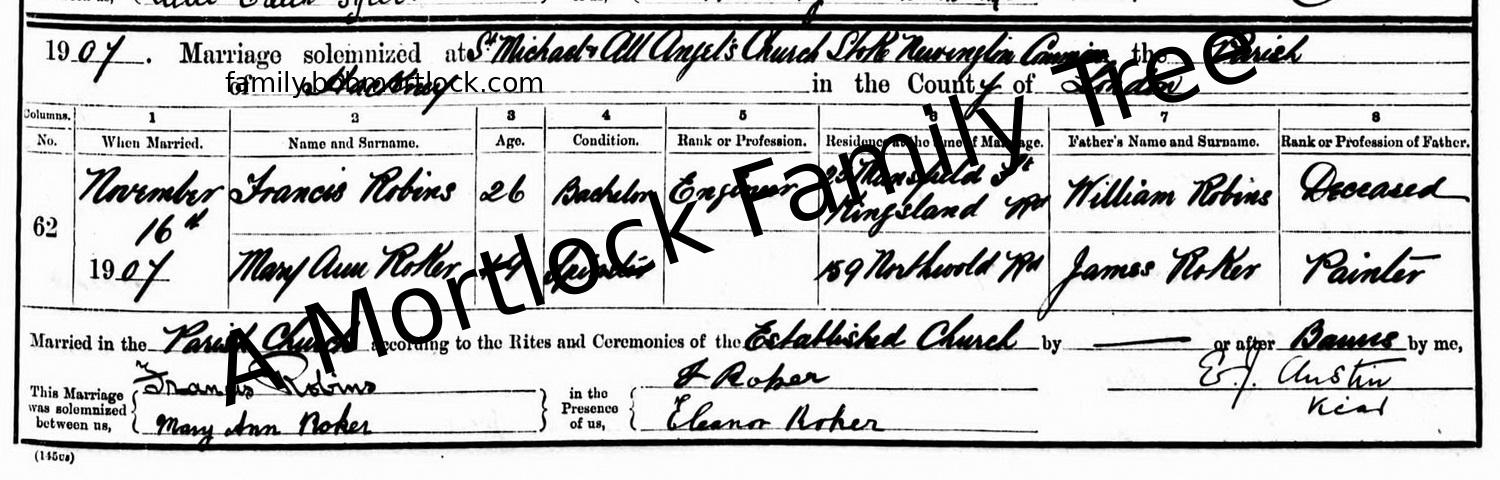 1907. Marriage solemnized at St Michael & All Angel's Church Stoke Newington Common the Parish
of Hackney in the County of London
family.bobmortlock.com
A Mortlock Family Tree
Columns. 1 2 3 4 5 6 7 8
No. When Married. Name and Surname. Age. Condition. Rank or Profession. Residence at the time of Marriage. Father's Name and Surname. Rank or Profession of Father.
62 November 16th 1907 Francis Robins 26 Bachelor Engineer Mansfield St Kingsland Rd William Robins Deceased
Mary Ann Roker Spinster 159 Northwold Rd James Roker Painter
Married in the Parish Church according to the Rites and Ceremonies of the Established Church by — or after Banns by me,
This Marriage was solemnized between us, Francis Robins in the Presence of us, J Roker E.J. Austin
Mary Ann Roker Eleanor Roker
(145cs)